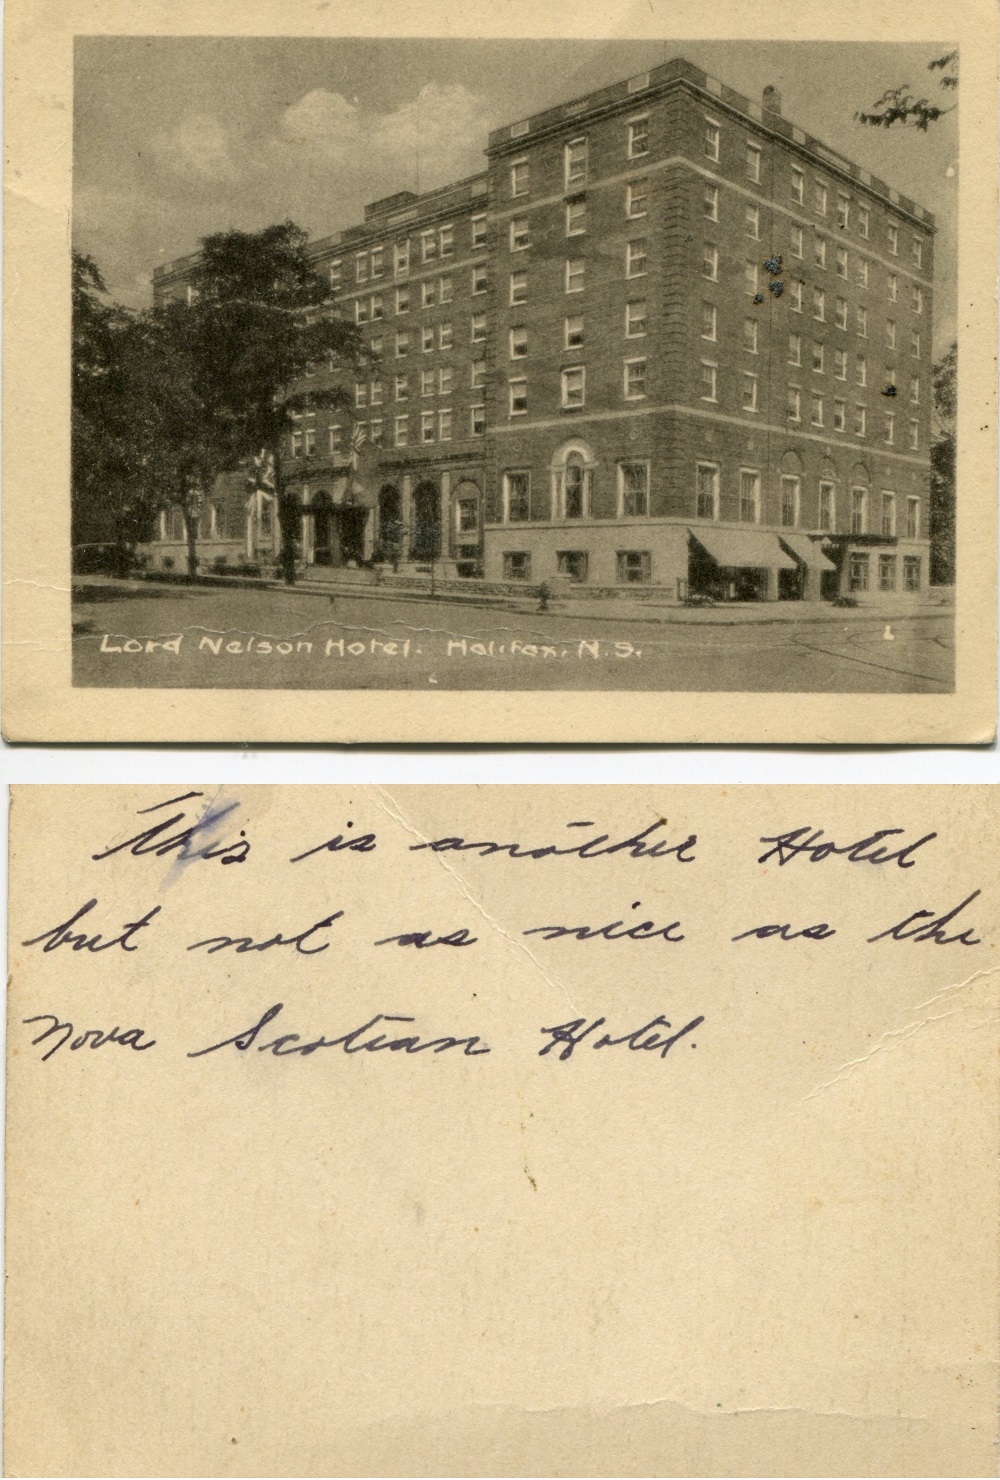 Lord Nelson Hotel. Halifax, N.S.
This is another Hotel
but not as nice as the
Nova Scotian Hotel.